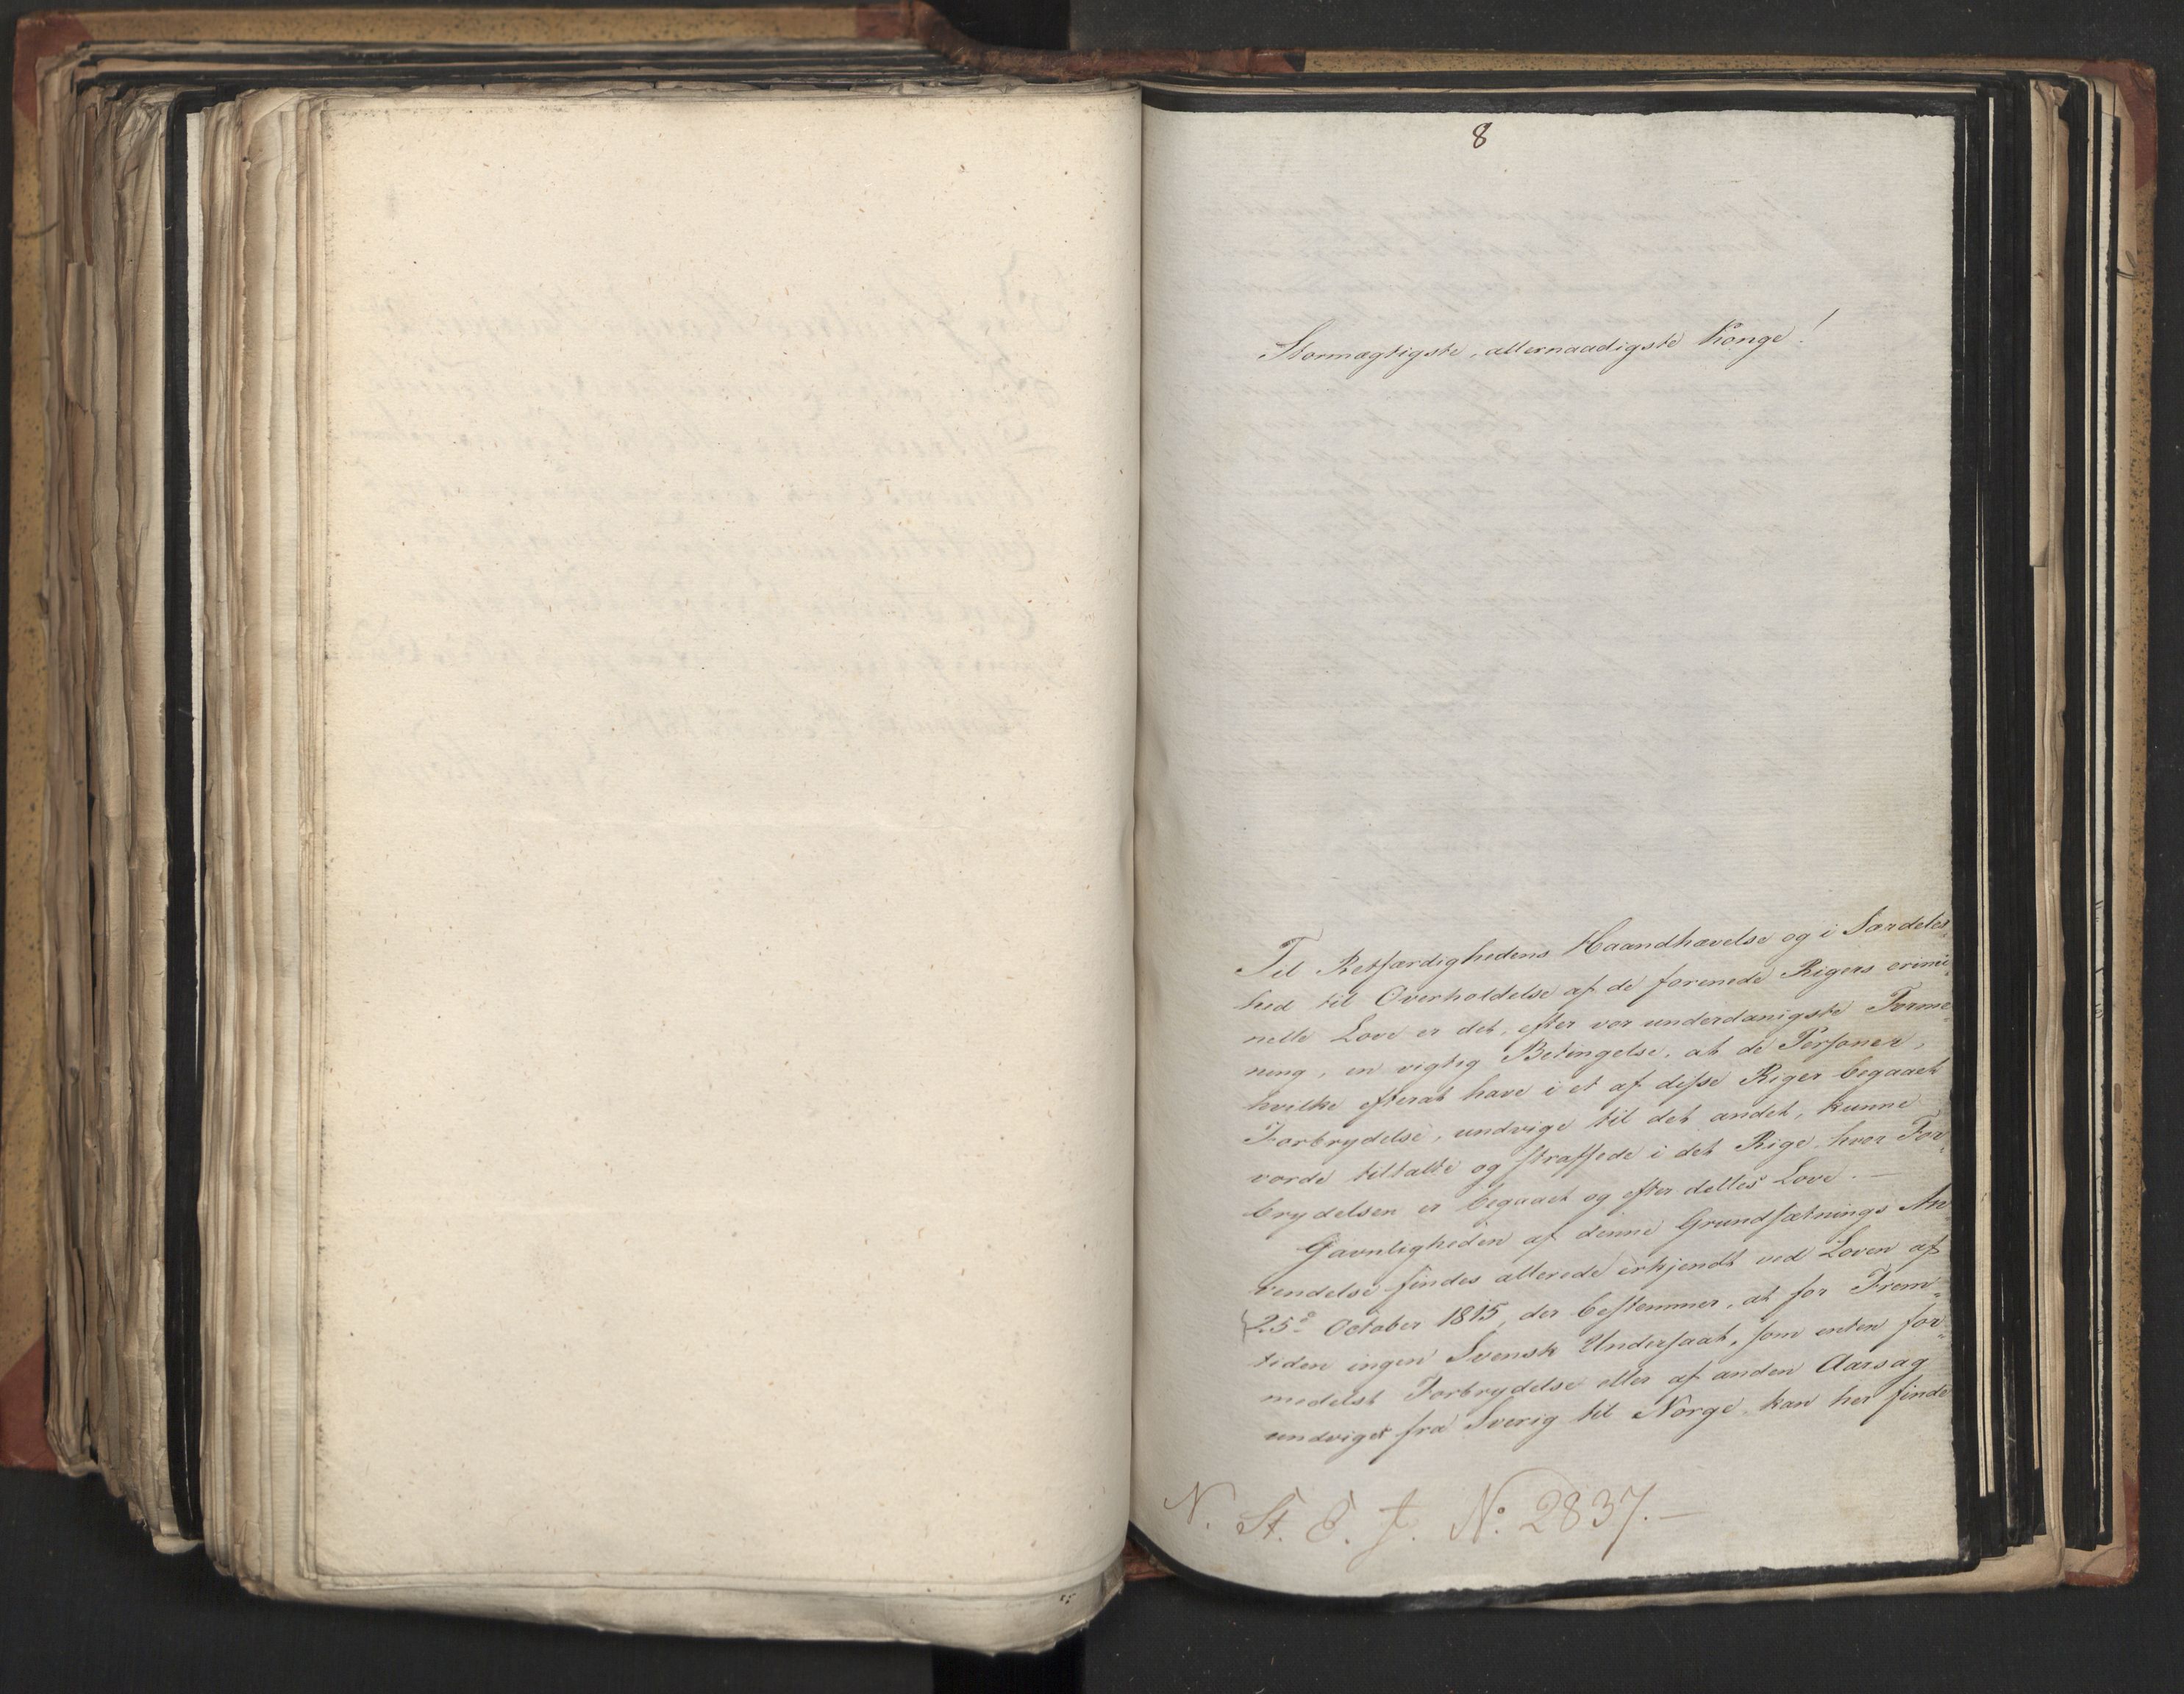 8
Stormægtigste, allernaadigste Konge!
Til Retfærdighedens Haandhævelse og i Særdeles„
hed til Overholdelse af de forenede Rigers crimi„
nelle Love er det, efter vor underdanigste Forme„
ning, en vigtig Betingelse, at de Personer,
hvilke efterat have i et af disse Riger begaaet
Forbrydelse, undvige til det andet, kunne
vorde tiltalte og straffede i det Rige hvor For„
brydelsen er begaaet og efter dettes Love. —
Gavnligheden af denne Grundsætnings An„
vendelse findes allerede erkjendt ved Loven af
25de October 1815, der bestemmer, at for Frem„
tiden ingen Svensk Undersaat, som enten for„
medelst Forbrydelse eller af anden Aarsag
undviget fra Sverig til Norge kan her finde
N. St. E. J. No. 2837. —